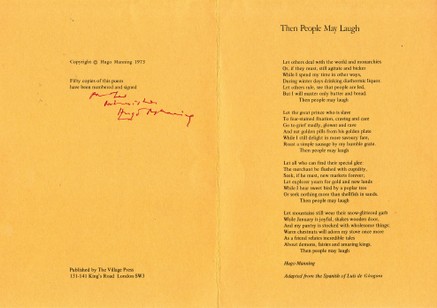 Copyright © Hugo Manning 1973
Fifty copies of this poem
have been numbered and signed
Hugo Manning
Published by The Village Press
131-141 King's Road London SW3
Then People May Laugh
Let others deal with the world and monarchies
Or, if they must, still agitate and bicker
While I spend my time in other ways,
During winter days drinking diathermic liquor.
Let others rule, see that people are fed,
But I will master only butter and bread.
Then people may laugh
Let the great prince who is slave
To fear-stained fixation, cunning and cant
Go to grief madly, glower and rave
And eat golden pills from his golden plate
While I still delight in more savoury fare,
Roast a simple sausage by my humble grate.
Then people may laugh
Let all who can find their special glee
The merchant be flushed with cupidity,
Seek, if he must, new markets forever,
Let explorer yearn for gold and new lands
While I hear sweet bird by a poplar tree
Or seek nothing more than shellfish in sands.
Then people may laugh
Let mountains still wear their snow-glittered garb
While January is joyful, shakes wooden door,
And my pantry is stocked with wholesome things:
Warm chestnuts will adorn my stove once more
As a friend relates incredible tales
About demons, fairies and amazing kings.
Then people may laugh
Hugo Manning
Adapted from the Spanish of Luis de Góngora